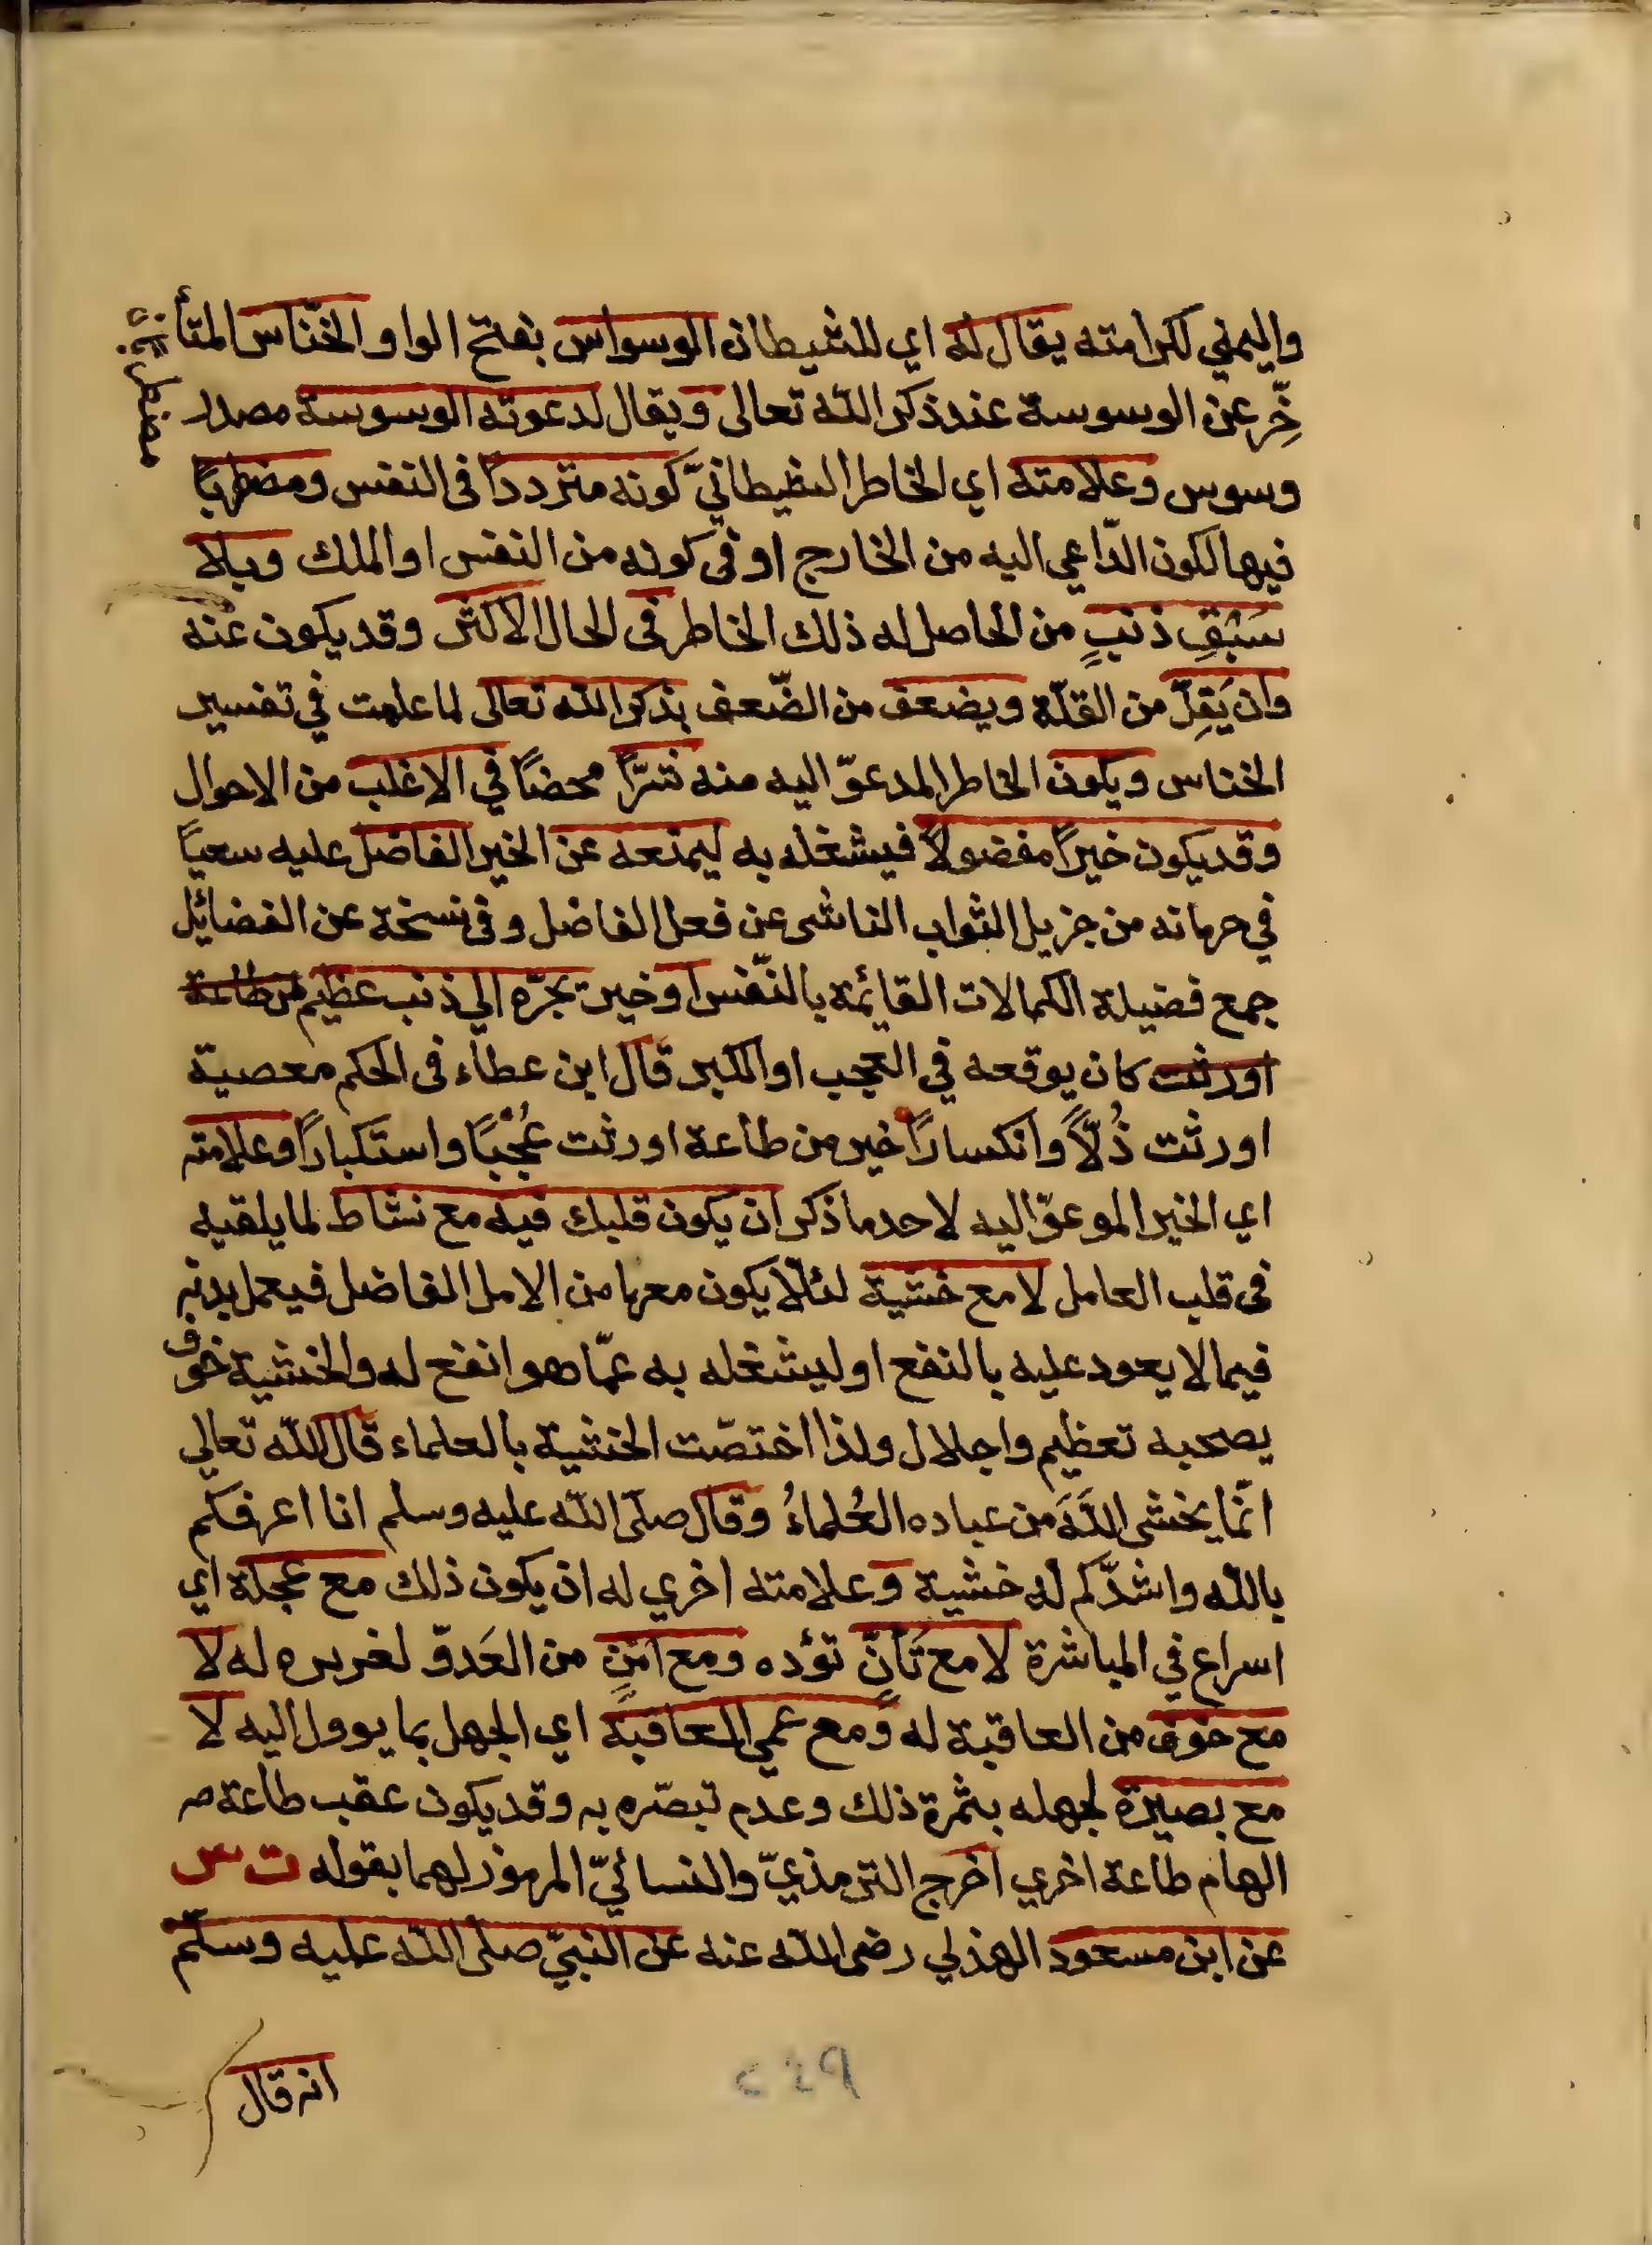 واليمني لكرامته يقال له اي للشيطان الوسواس بفتح الواو والخنّاس المتأ
خِّر عن الوسوسة عند ذكر الله تعالى ويقال لدعوته الوسوسة مصدر
وسوس وعلامته اي الخاطر الشيطانيّ كونه مترددًا فى النفس ومضطربًا
فيها لكون الدّاعي اليه من الخارج او فى كونه من النفس او الملك وبالا
سَبْقِ ذنبٍ من الحاصل له ذلك الخاطر فى الحال الاكثر وقد يكون عنه
وان يَقِلّ من القلّة ويضعف من الضّعف بذكر الله تعالى لما علمت في تفسير
الخناس ويكون الخاطر المدعوّ اليه منه شرًّا محضًا في الاغلب من الاحوال
وقد يكون خيرًا مفضولًا فيشغله به ليمنعه عن الخير الفاضل عليه سعيًا
في حرمانه من جزيل الثواب الناشى عن فعل الفاضل وفى نسخة عن الفضائل
جمع فضيلة الكمالات القائمة بالنّفس او خير يجرّه الي ذنب عظيم من طاعة
اورثت كان يوقعه في العجب او الكبر قال ابن عطاء فى الحكم معصية
اورثت ذُلًّا وانكسارًا خير من طاعة اورثت عُجْبًا واستكبارًا وعلامته
اي الخير الموعوّ اليه لاحد ما ذكر ان يكون قلبك فيه مع نشاط لما يلقيه
فى قلب العامل لا مع خشية لئلّا يكون معها من الامل الفاضل فيعمل بدنه
فيما لا يعود عليه بالنفع او ليشغله به عمّا هو انفع له والخشية خوف
يصحبه تعظيم واجلال ولذا اختصّت الخشية بالعلماء قال الله تعالي
انّما يخشى اللهَ من عباده العُلماءُ وقال صلّى الله عليه وسلم انا اعرفكم
بالله واشدّكم له خشية وعلامته اخري له ان يكون ذلك مع عجلة اي
اسراع في المباشرة لا مع تَأنّ تؤده ومع امْنٍ من العَدوّ لغروره له لا
مع خوف من العاقبة له ومع عمي العاقبة اي الجهل بما يوول اليه لا
مع بصيرة لجهله بثمرة ذلك وعدم تبصّره به وقد يكون عقب طاعة
الهام طاعة اخري اخرج الترمذيّ والنسائيّ المرموز لهما بقوله ت س
عن ابن مسعود الهذلي رضى الله عنه عن النبيّ صلّى الله عليه وسلّم
انه قال